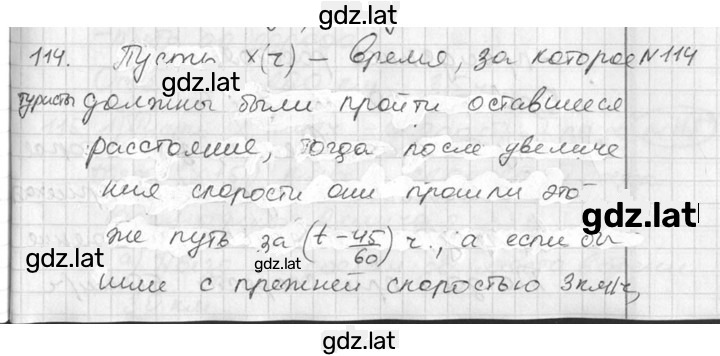 gdz.lat
114. Пусть x(ч) – время, за которое №114
gdz.lat
туристы должны были пройти оставшееся
расстояние, тогда после увеличе
ния скорости они прошли это
gdz.lat
же путь за (t - 45/60) ч., а если бы
gdz.lat
gdz.lat
шли с прежней скоростью 3км/ч,
gdz.lat